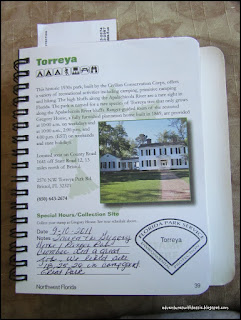 Torreya
This historic 1930s park, built by the Civilian Conservation Corps, offers
a variety of recreational activities including camping, primitive camping
and hiking. The high bluffs along the Apalachicola River are a rare sight in
Florida. The park is named for a rare species of Torreya tree that only grows
along the Apalachicola River bluffs. Ranger guided tours of the restored
Gregory House, a fully furnished plantation home built in 1849, are provided
at 10:00 a.m. on weekdays and
at 10:00 a.m., 2:00 p.m. and
4:00 p.m. (EST) on weekends
and state holidays.
Located west on County Road
1641 off State Road 12, 13
miles north of Bristol.
2576 N.W. Torreya Park Rd.
Bristol, FL 32321
(850) 643-2674
Special Hours/Collection Site
Collect your stamp at Gregory House; for tour schedule above.
Date 9-10-2011
Notes
a great
FLORIDA PARK SERVICE
Torreya
Northwest Florida
39
adventureswithdessin.blogspot.com